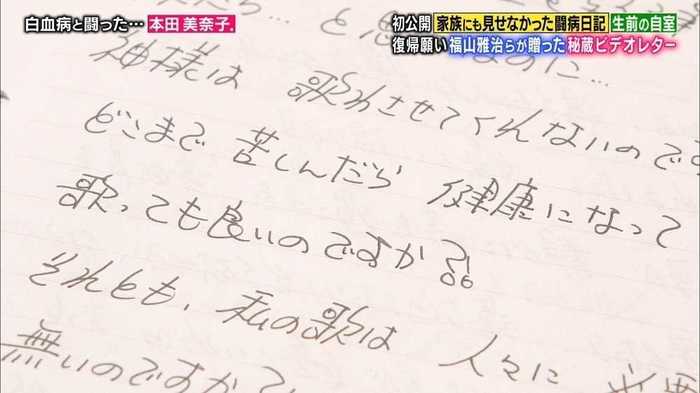 白血病と闘った… 本田 美奈子.
初公開 家族にも見せなかった闘病日記 生前の自室
復帰願い 福山雅治らが贈った 秘蔵ビデオレター
なのに…
神様は 歌わさせてくれないので
どこまで 苦しんだら 健康になって
歌っても良いのですか?!
それとも、私の歌は 人々に 必要
無いのですか?